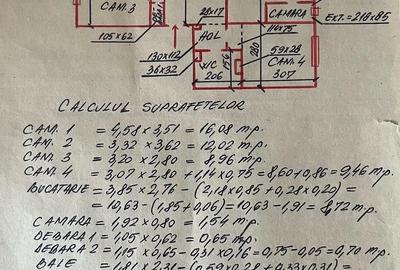 CAM. 3
CĂMARA
EXT.=218x85
28x17
105x62
HOL
114x75
130x112
59x28
280
36x32
156
CAM. 4
206
307
CALCULUL SUPRAFEȚELOR
CAM. 1 = 4,58 x 3,51 = 16,08 mp.
CAM. 2 = 3,32 x 3,62 = 12,02 mp.
CAM. 3 = 3,20 x 2,80 = 8,96 mp.
CAM. 4 = 3,07 x 2,80 + 1,14 x 0,75 = 8,60 + 0,86 = 9,46 mp.
BUCĂTĂRIE = 3,85 x 2,76 - (2,18 x 0,85 + 0,28 x 0,20) =
= 10,63 - (1,85 + 0,06) = 10,63 - 1,91 = 8,72 mp.
CĂMARA = 1,92 x 0,80 = 1,54 mp.
DEBARA 1 = 1,05 x 0,62 = 0,65 mp.
DEBARA 2 = 1,15 x 0,65 - 0,31 x 0,16 = 0,75 - 0,05 = 0,70 mp.
BAIE = 1,81 x 2,31 - (0,59 x 0,28 + 0,33 x 0,31) =